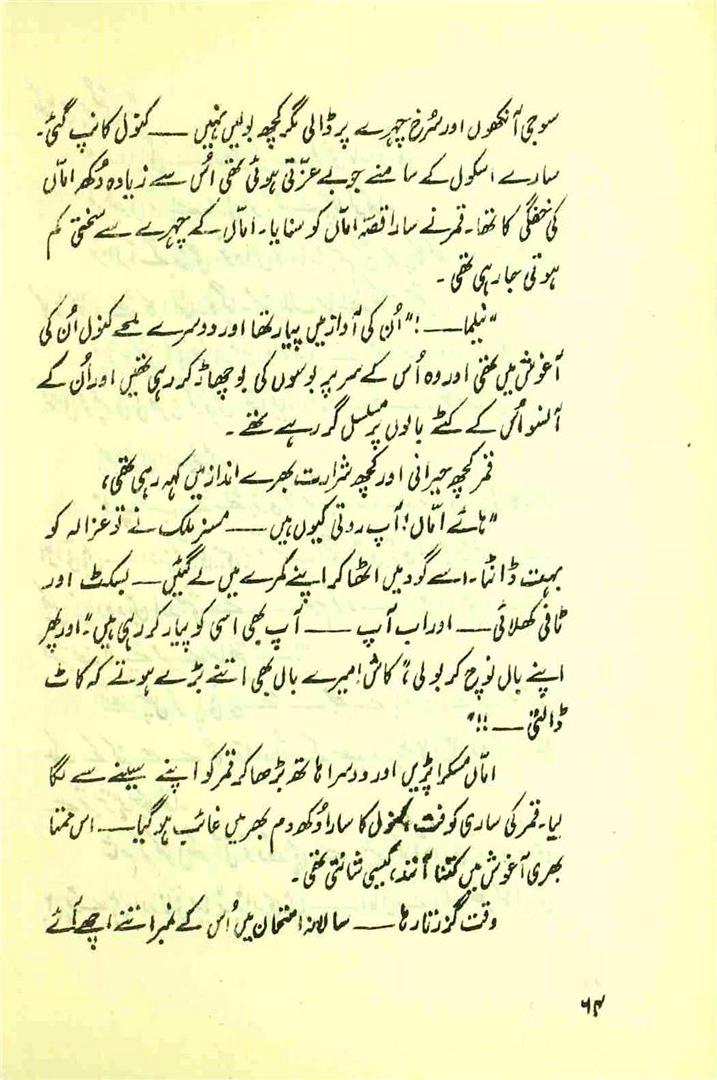 سوجی آنکھوں اور سُرخ چہرے پر ڈالی مگر کچھ بولیں نہیں ـــ کنول کانپ گئی۔
سارے اسکول کے سامنے جو بے عزّتی ہوئی تھی اُس سے زیادہ دُکھ امّاں
کی خفگی کا تھا۔ قمر نے سارا قصّہ امّاں کو سنایا۔ امّاں کے چہرے سے سختی کم
ہوتی جا رہی تھی۔
"نیلما ـــ !" اُن کی آواز میں پیار تھا اور دوسرے لمحے کنول اُن کی
آغوش میں تھی اور وہ اُس کے سر پر بوسوں کی بوچھاڑ کر رہی تھیں اور اُن کے
آنسو اُس کے کٹے بالوں پر مسلسل گر رہے تھے۔
قمر کچھ حیرانی اور کچھ شرارت بھرے انداز میں کہہ رہی تھی،
"ہائے امّاں! آپ روتی کیوں ہیں ـــ مسز ملک نے تو غزالہ کو
بہت ڈانٹا۔ اسے گود میں اٹھا کر اپنے کمرے میں لے گئیں ـــ بسکٹ اور
ٹافی کھلائی ـــ اور اب آپ ـــ آپ بھی اسی کو پیار کر رہی ہیں۔" اور پھر
اپنے بال نوچ کر بولی، "کاش! میرے بال بھی اتنے بڑے ہوتے کہ کاٹ
ڈالتی ـــ !!"
امّاں مسکرا پڑیں اور دوسرا ہاتھ بڑھا کر قمر کو اپنے سینے سے لگا
لیا۔ قمر کی ساری کوفت، کنول کا سارا دُکھ دم بھر میں غائب ہو گیا ـــ اس ممتا
بھری آغوش میں کتنا آنند، کیسی شانتی تھی۔
وقت گزرتا رہا ـــ سالانہ امتحان میں اُس کے نمبر اتنے اچھے آئے
۶۴